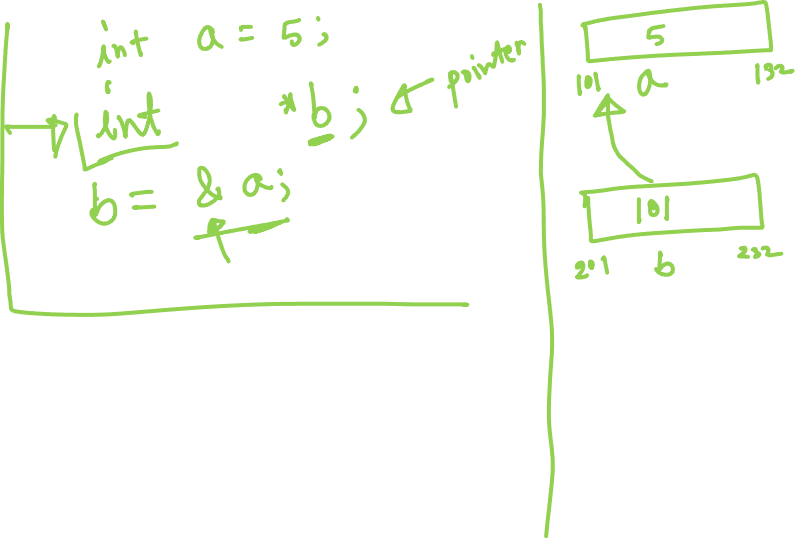 int a = 5;
int *b; pointer
b = & a;
5
101 a 132
101
201 b 232